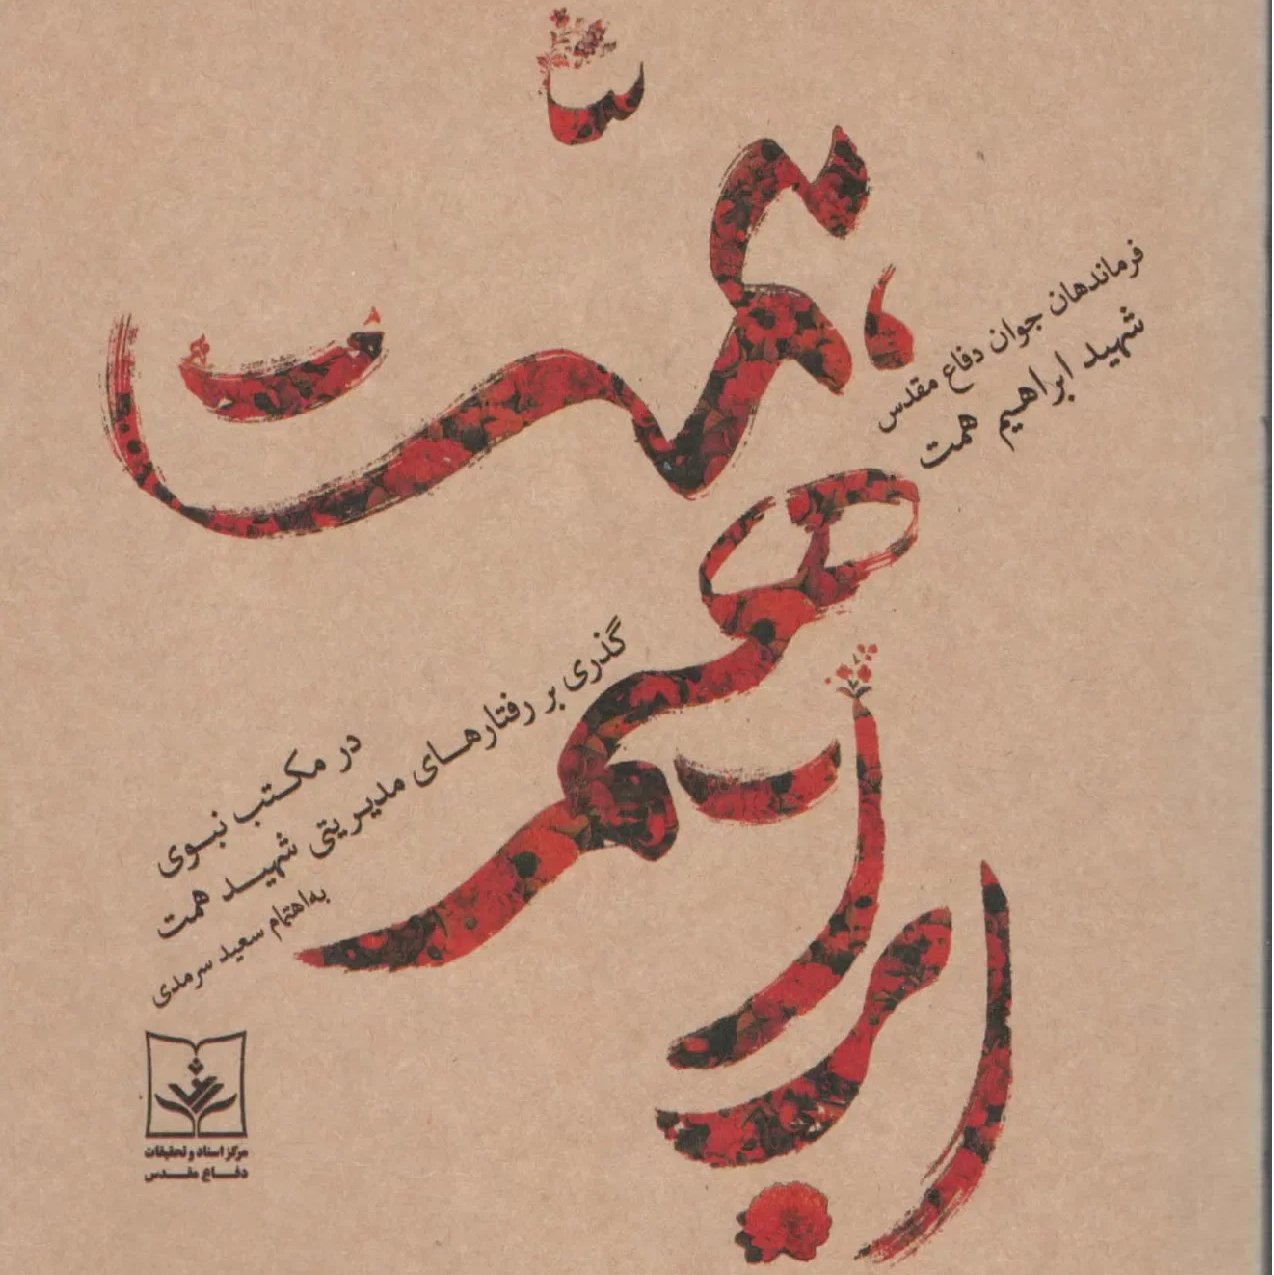 ابراهیم
همّت
فرماندهان جوان دفاع مقدس
شهید ابراهیم همت
در مکتب نبوی
گذری بر رفتارهای مدیریتی شهید همت
به‌اهتمام سعید سرمدی
مرکز اسناد و تحقیقات
دفاع مقدس